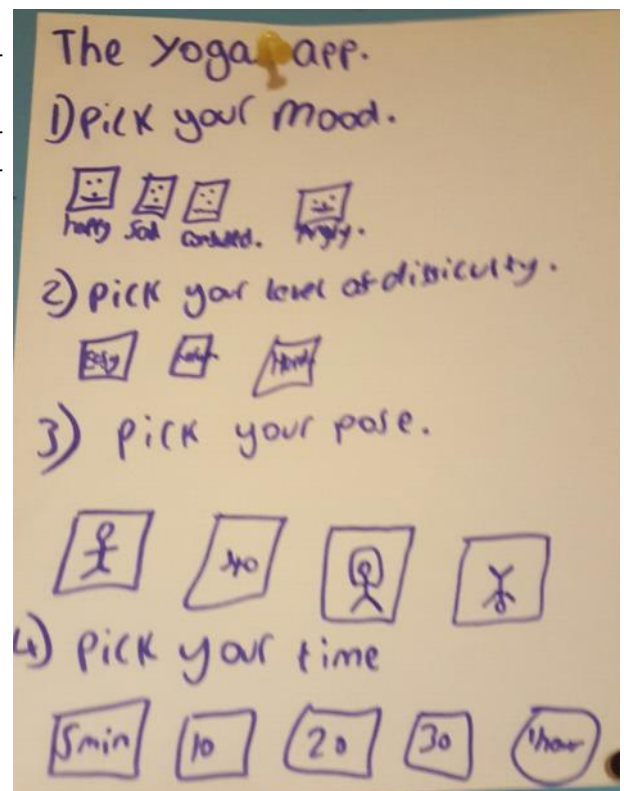 The yoga app.
1) Pick your mood.
happy sad confused. Angry.
2) pick your level of difficulty.
Easy Hard
3) pick your pose.
4) pick your time
5min 10 20 30 1hour